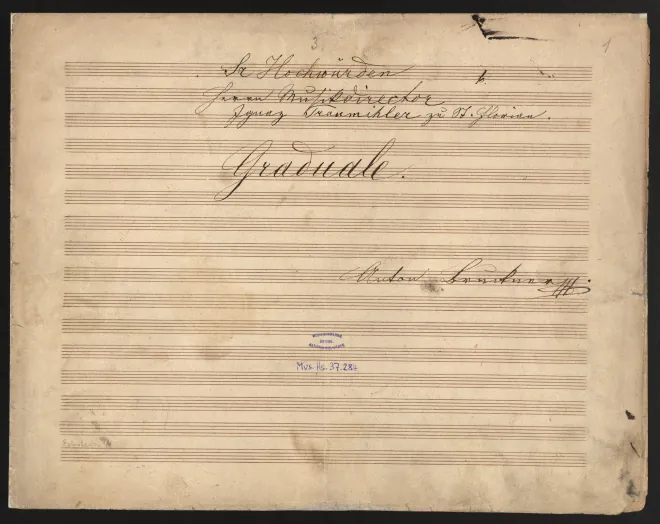 3
1
Sr Hochwürden
Herrn Musikdirector
Ignaz Traumihler zu St. Florian.
Graduale.
Anton Bruckner
Mus. Hs. 37.284